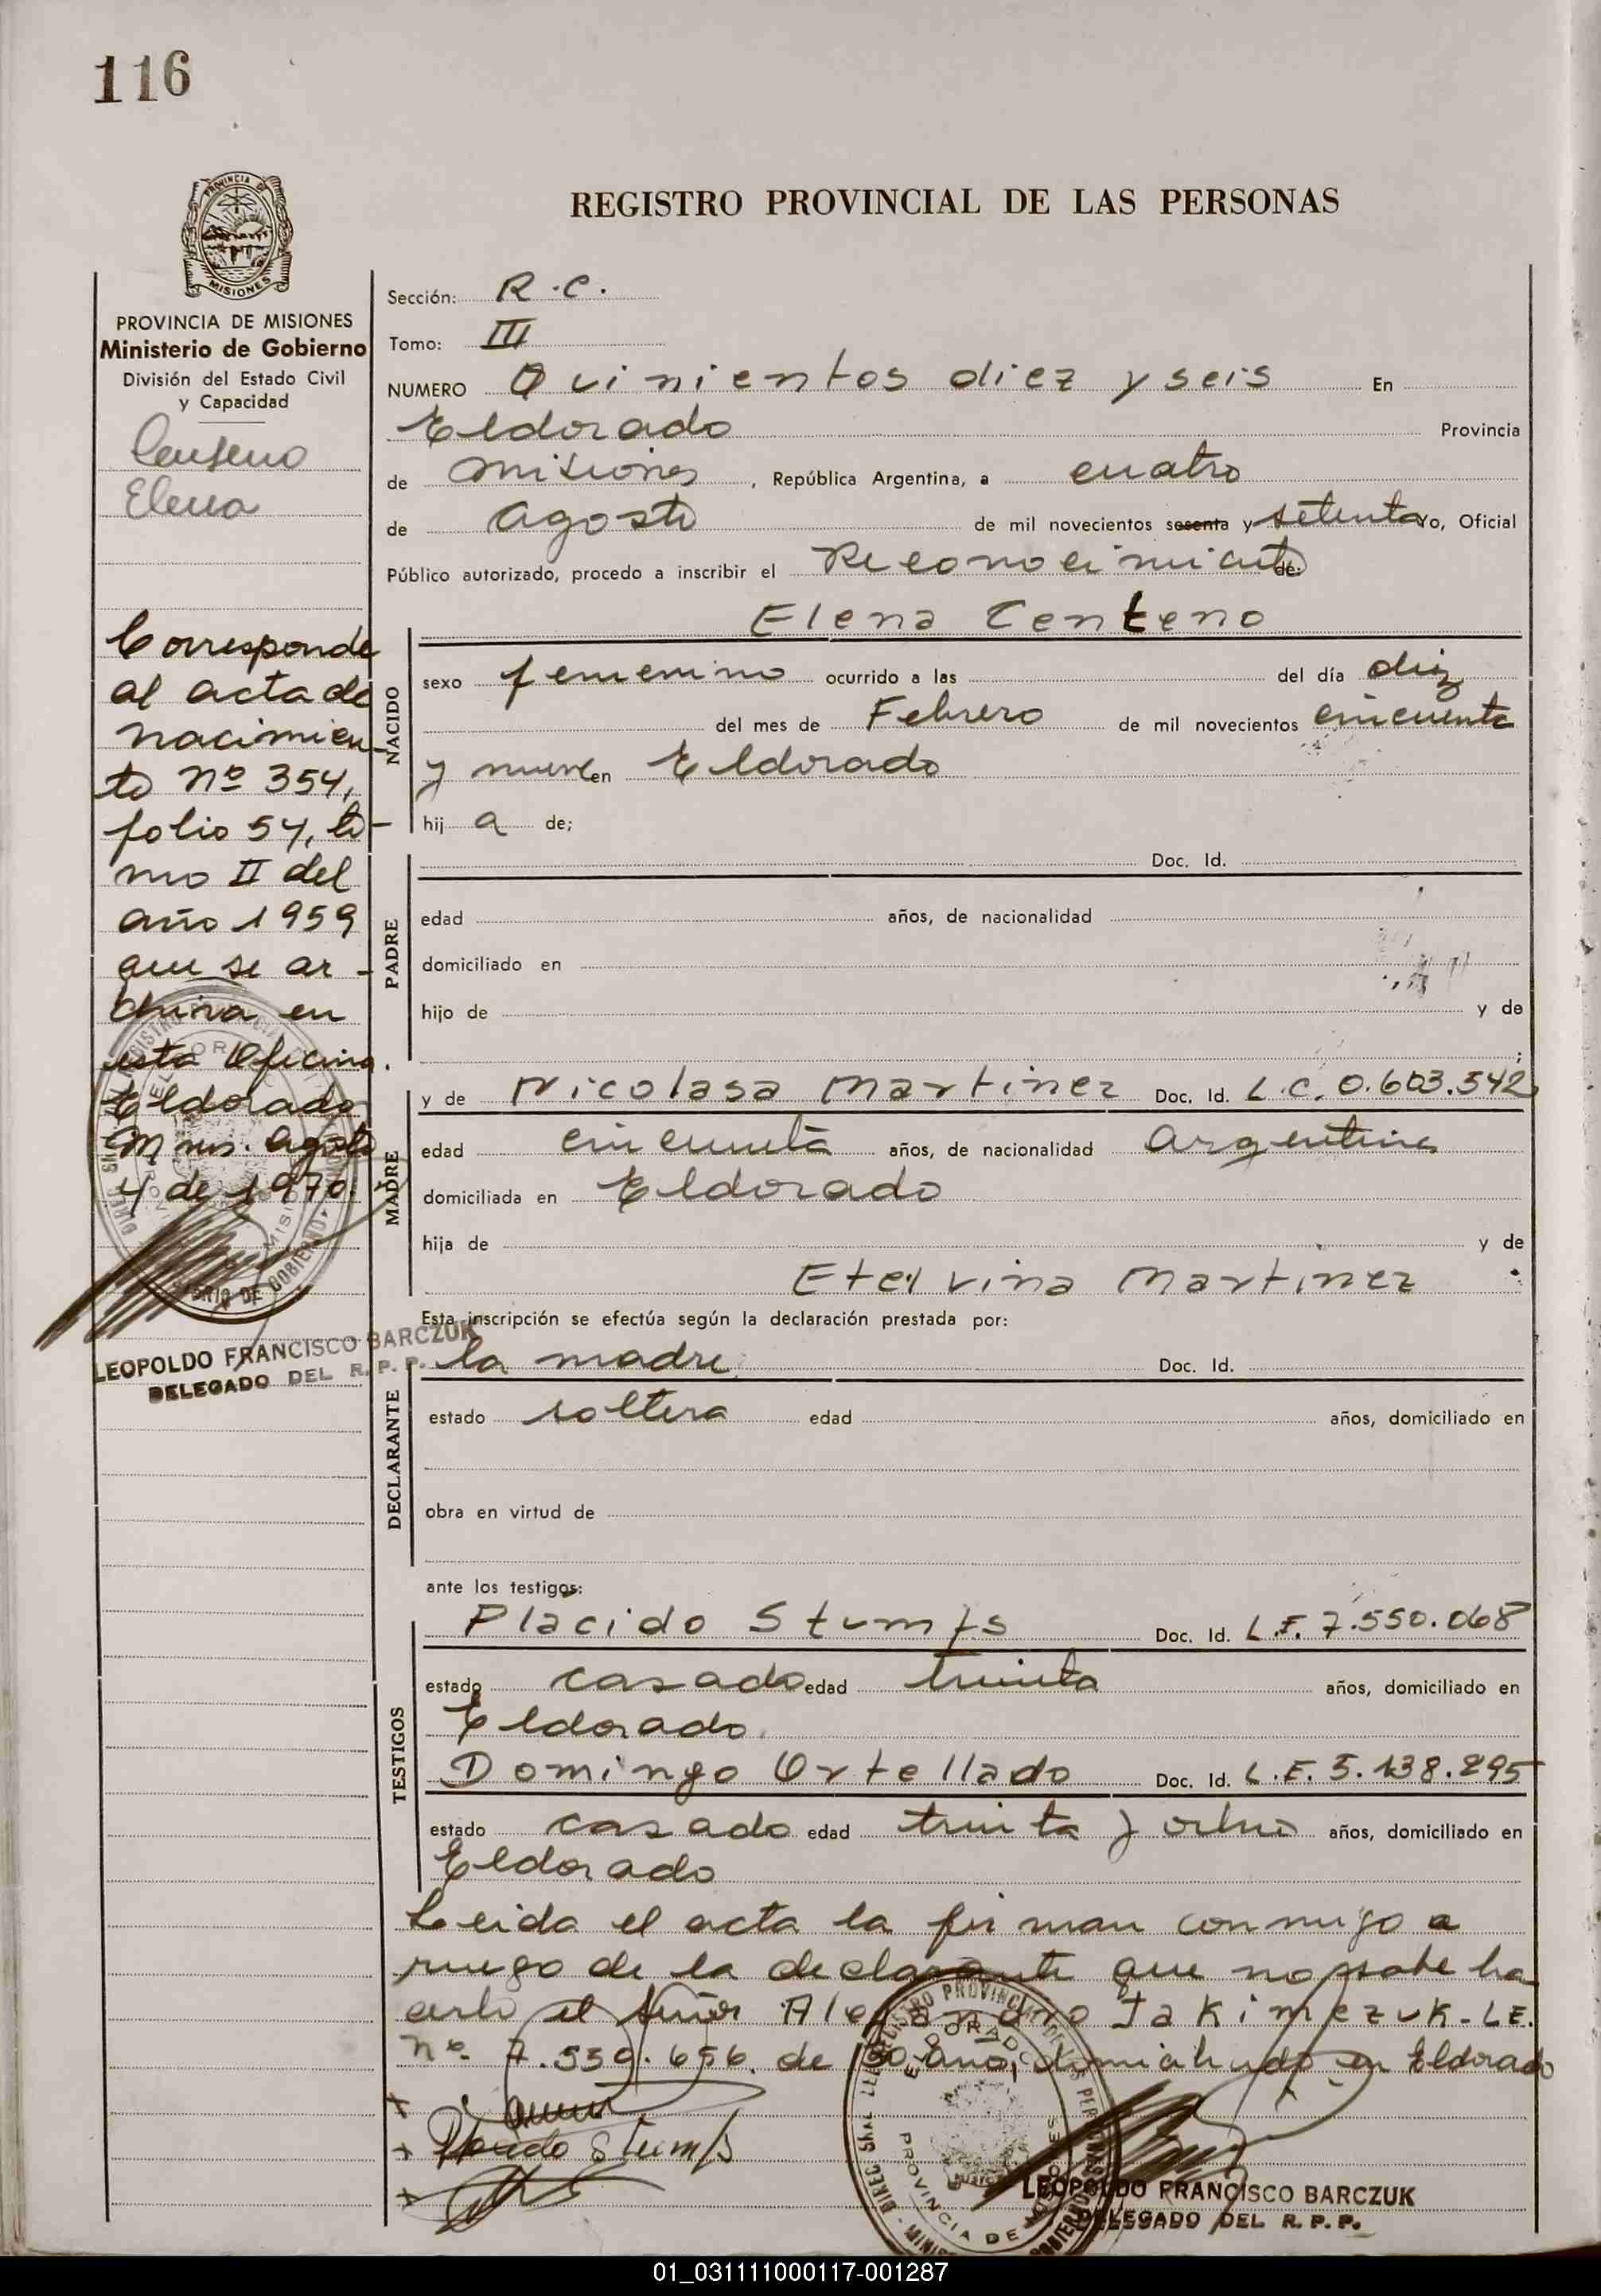 116
PROVINCIA DE
MISIONES
REGISTRO PROVINCIAL DE LAS PERSONAS
PROVINCIA DE MISIONES
Ministerio de Gobierno
División del Estado Civil
y Capacidad
Centeno
Elena
Corresponde
al acta de
nacimien-
to nº 354,
folio 54, to-
mo II del
año 1959
que se ar-
chiva en
esta Oficina.
Eldorado
Mnes. agosto
4 de 1970.
LEOPOLDO FRANCISCO BARCZUK
DELEGADO DEL R. P. P.
Sección: R.C.
Tomo: III
NUMERO Quinientos diez y seis En
Eldorado Provincia
de Misiones, República Argentina, a cuatro
de agosto de mil novecientos sesenta y setenta Yo, Oficial
Público autorizado, procedo a inscribir el Reconocimiento de:
Elena Centeno
NACIDO
sexo femenino ocurrido a las del día diez
del mes de Febrero de mil novecientos cincuenta
y nueve en Eldorado
hij a de;
PADRE
Doc. Id.
edad años, de nacionalidad
domiciliado en
hijo de y de
;
MADRE
y de Nicolasa Martinez Doc. Id. L.C. 0.603.542
edad cincuenta años, de nacionalidad argentina
domiciliada en Eldorado
hija de y de
Etelvina Martinez
Esta inscripción se efectúa según la declaración prestada por:
DECLARANTE
la madre Doc. Id.
estado soltera edad años, domiciliado en
obra en virtud de
ante los testigos:
TESTIGOS
Plácido Stumfs Doc. Id. L.E. 7.550.068
estado casado edad treinta años, domiciliado en
Eldorado
Domingo Ortellado Doc. Id. L.E. 5.138.295
estado casado edad treinta y ocho años, domiciliado en
Eldorado
Leida el acta la firman conmigo a
ruego de la declarante que no sabe ha
cerlo el señor Alejandro Jakimezuk - LE.
nº. 7.539.656. de 30 años, domiciliado en Eldorado
Placido Stumfs
LEOPOLDO FRANCISCO BARCZUK
DELEGADO DEL R. P. P.
01_031111000117-001287